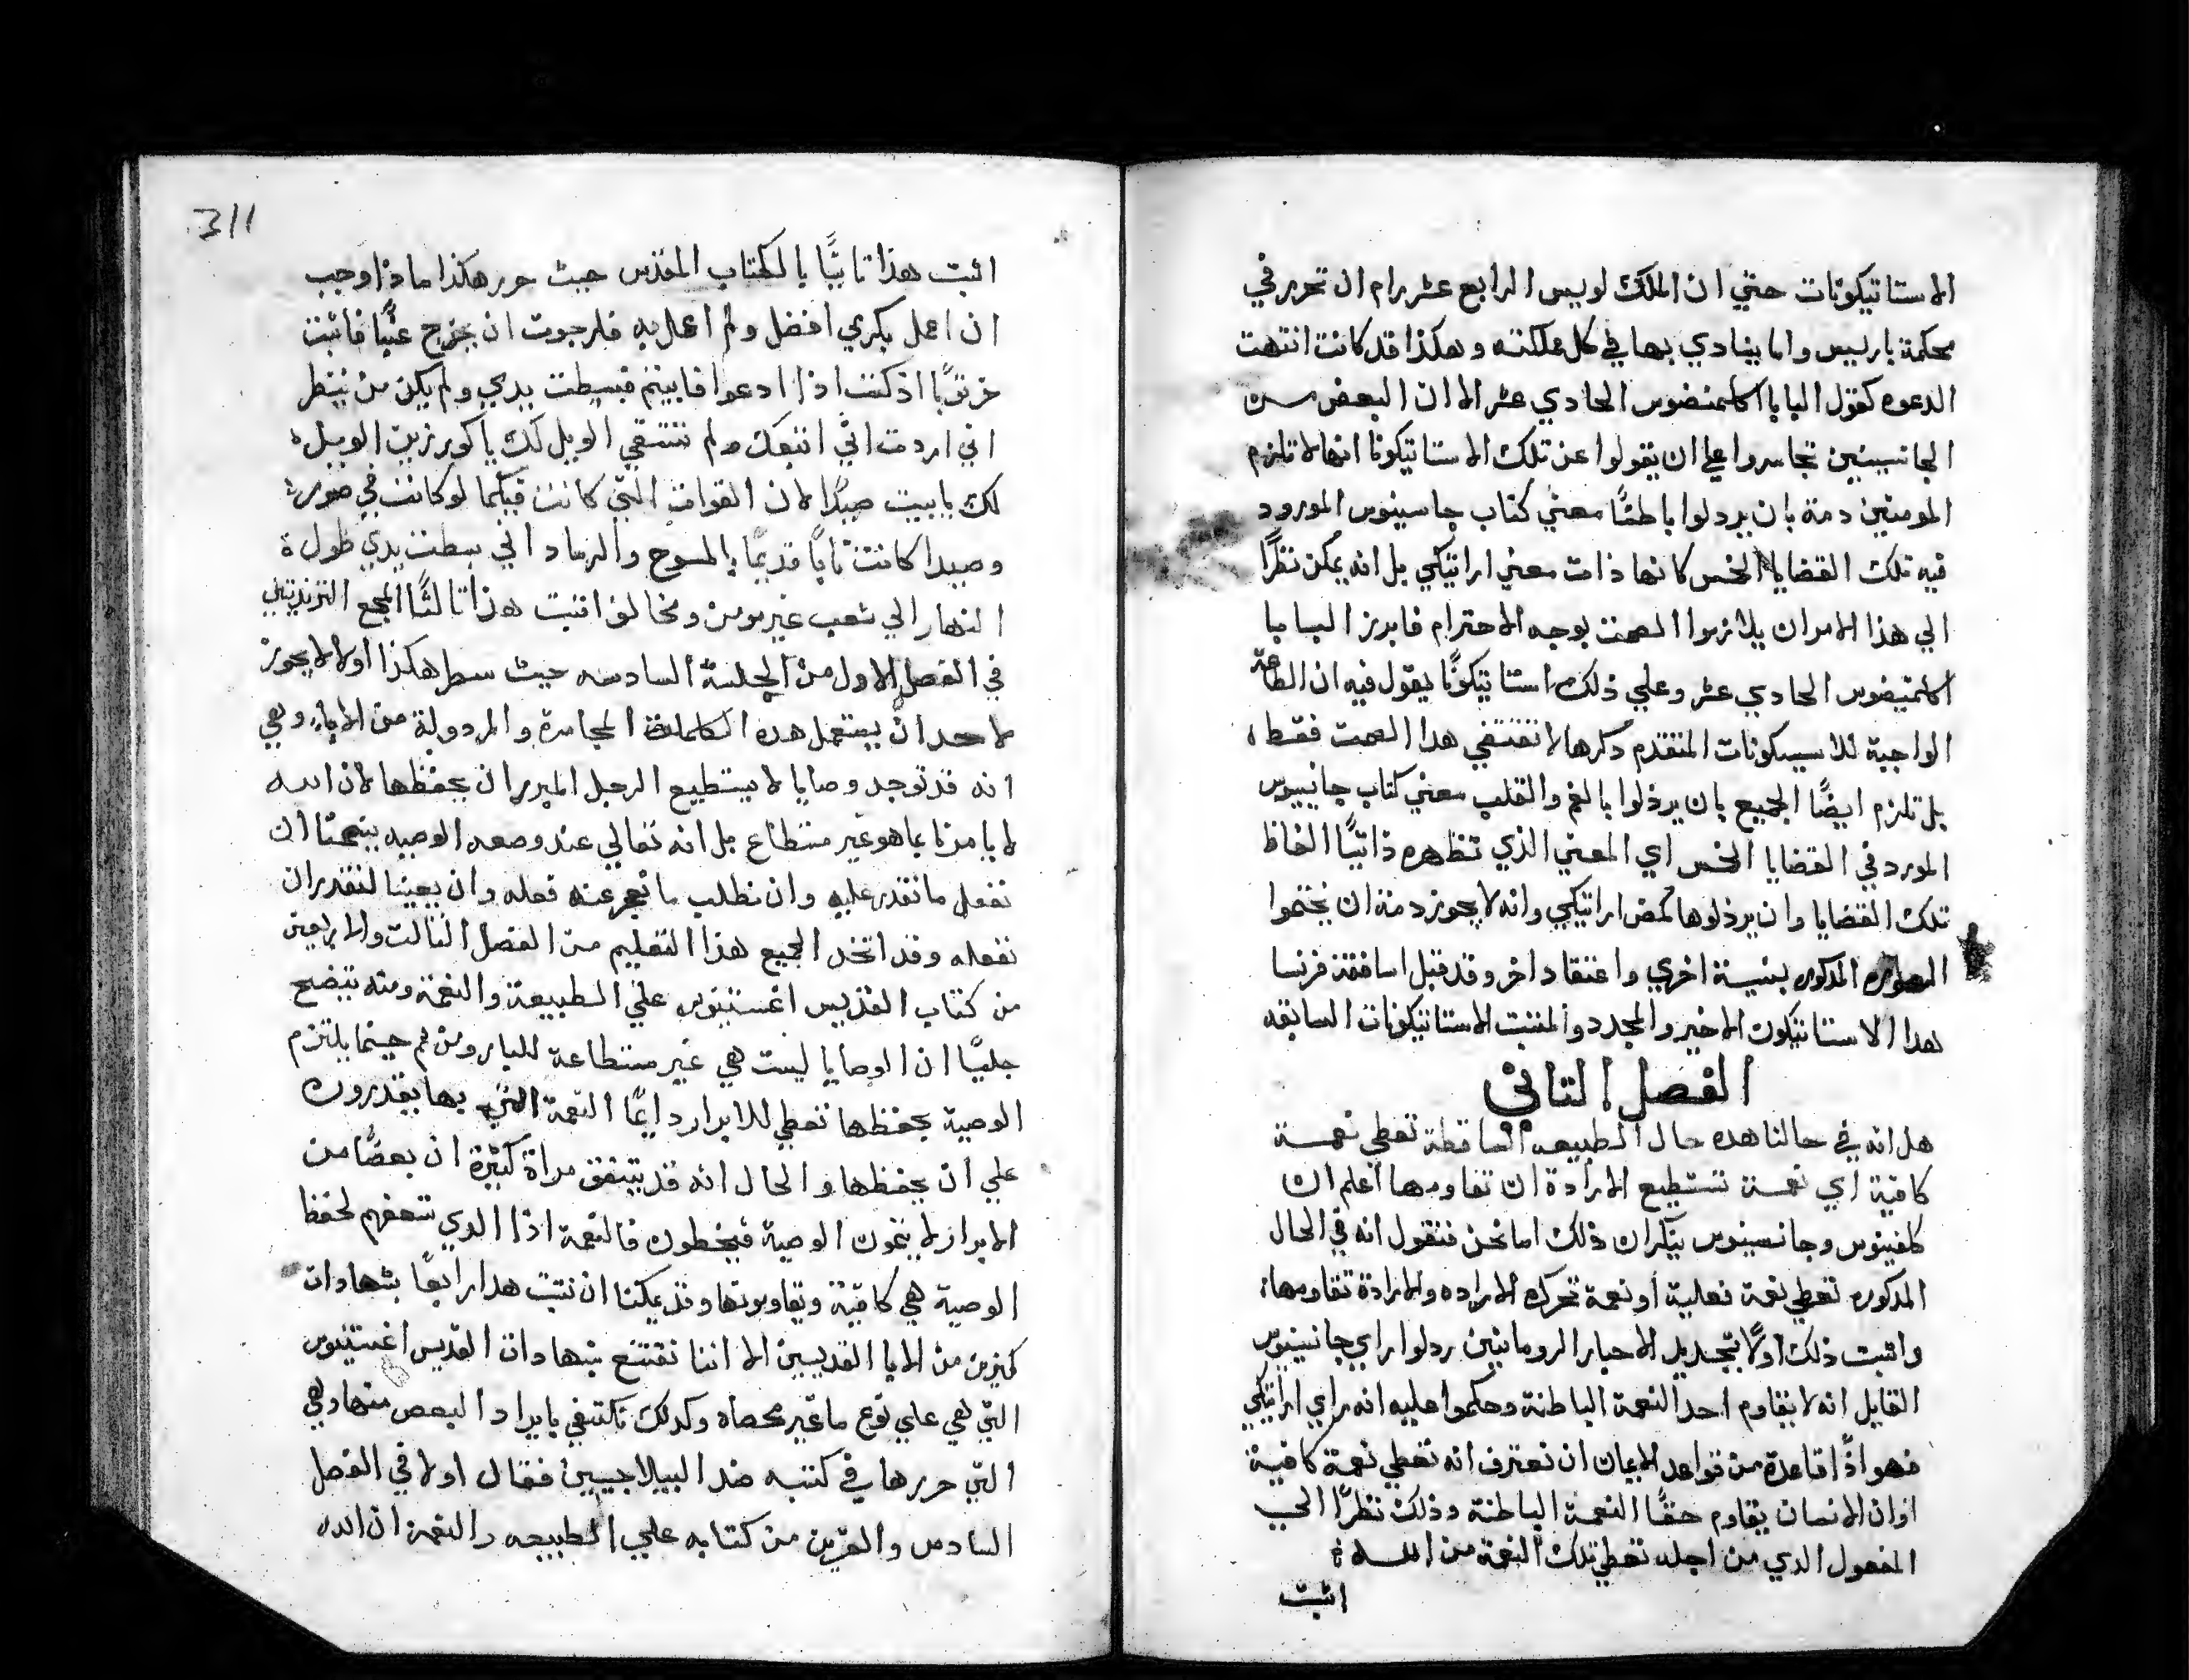 الاستاتيكونات حتي ان الملك لويس الرابع عشر رام ان تحرر في
محكمة باريس واما ينادي بها في كل مملكته وهكذا قد كانت انتهت
الدعوه كقول البابا اكلمنضوس الحادي عشر الا ان البعض من
الجانسينيين تجاسروا علي ان يقولوا عن تلك الاستاتيكونا انها لا تلزم
المومنين دمة بان يردلوا باطنًا معني كتاب جاسينوس المورود
فيه تلك القضايا الخمس كانها ذات معني اراتيكي بل انه يمكن نظرًا
الي هذا الامر ان يلازموا الصمت بوجه الاحترام فابرز البابا
اكلمنيضوس الحادي عشر وعلي ذلك استاتيكونًا يقول فيه ان الطاعة
الواجبة للاسيسكونات المتقدم دكرها لا تقتضي هدا الصمت فقط،
بل تلزم ايضًا الجميع بان يرذلوا بالفم والقلب معني كتاب جانسيوس
المورد في القضايا الخمس اي المعني الذي تظهره ذاتيًا الفاظ
تلك القضايا وان يرذلوها كمض اراتيكي وانه لا يجوز دمة ان يختموا
الصوره المدكوره بنيسة اخري واعتقاد اخر وقد قبل اسافقة فرنسا
هدا الاستاتيكون الاخير والمجدد والمتبت الاستاتيكونات السابقه
الفصل التاني
هل انه في حالنا هده حال الطبيعه الساقطة تعطي نعمة
كافية اي نعمة تستطيع الارادة ان تقاومها اعلم ان
كلفينوس وجانسينوس ينكران ذلك اما نحن فنقول انه في الحال
المدكوره تعطي نعمة فعلية او نعمة تحرك الاراده والارادة تقاومها،
واثبت ذلك اولًا بتجديد الاحبار الرومانيين ردلوا راي جانسينوس
القايل انه لا يقاوم احد النعمة الباطنة وحكموا عليه انه راي اراتيكي
فهو اذًا قاعدة من قواعد الايمان ان نعترف انه تعطي نعمة كافية
او ان الانسان يقاوم حقًا النعمة الباطنة وذلك نظرًا الي
المفعول الدي من اجله تعطي تلك النعمة من الله
اثبت
311
اثبت هذا تانيًا بالكتاب المقدس حيث حرر هكذا ماذا وجب
ان اعمل بكرمي افضل ولم اعمل به فلرجوت ان يخرج عنبًا فاثبت
خرنوبًا اذ كنت اذا ادعوا فابيتم فبسطت يدي ولم يكن من ينظر
اني اردت اني اتبعك ولم تنتقي الويل لك يا كورزين الويل
لك يا بيت صيدا لان القوات التي كانت فيكما لو كانت في صور
وصيدا كانتتا تابا قديمًا بالمسوح والرماد اني بسطت يدي طول
النهار الي شعب غير مومن ومخالف اثبت هذا تالتًا المجمع التريدنتيني
في الفصل الاول من الجلسة السادسه حيث سطر هكذا اولا لا يجوز
لاحد ان يستعمل هده الكلمات المجاسرة والمردولة من الاباء وهي
انه قد توجد وصايا لا يستطيع الرجل المبرر ان يحفظها لان الله
لا يامرنا بما هو غير مستطاع بل انه تعالي عند وصعه الوصيه ينصحنا ان
نفعل ما نقدر عليه وان نطلب ما نعجز عنه فعله وان يعيننا لنقدر ان
نفعله وقد اتخد الجميع هذا التعليم من الفصل التالت والاربعين
من كتاب القديس اغستنوس علي الطبيعة والنعمة ومنه يتضح
جليًا ان الوصايا ليست هي غير مستطاعة للبار ومن ثم حينما يلتزم
الوصية بحفظها تعطي للابرار دايمًا النعمة التي بها يقدرون
علي ان يحفظها والحال انه قد يتفق مراة كثيرة ان بعضًا من
الابرار لا يتمون الوصية فيخطون فالنعمة اذا الدي تسعفهم لحفظ
الوصية هي كافية ويقاومونها وقد يمكنا ان نتبت هدا رابعًا بشهادات
كثيرين من الابا القديسين الا اننا نقتنع بشهادات القديس اغستينوس
التي هي علي نوع ما غير محصاه وكدلك نكتفي بايراد البعص منها وهي
التي حررها في كتبه ضد البيلاجيين فقال اولا في الفصل
السادس والعشرين من كتابه علي الطبيعه والنعمة ان الله